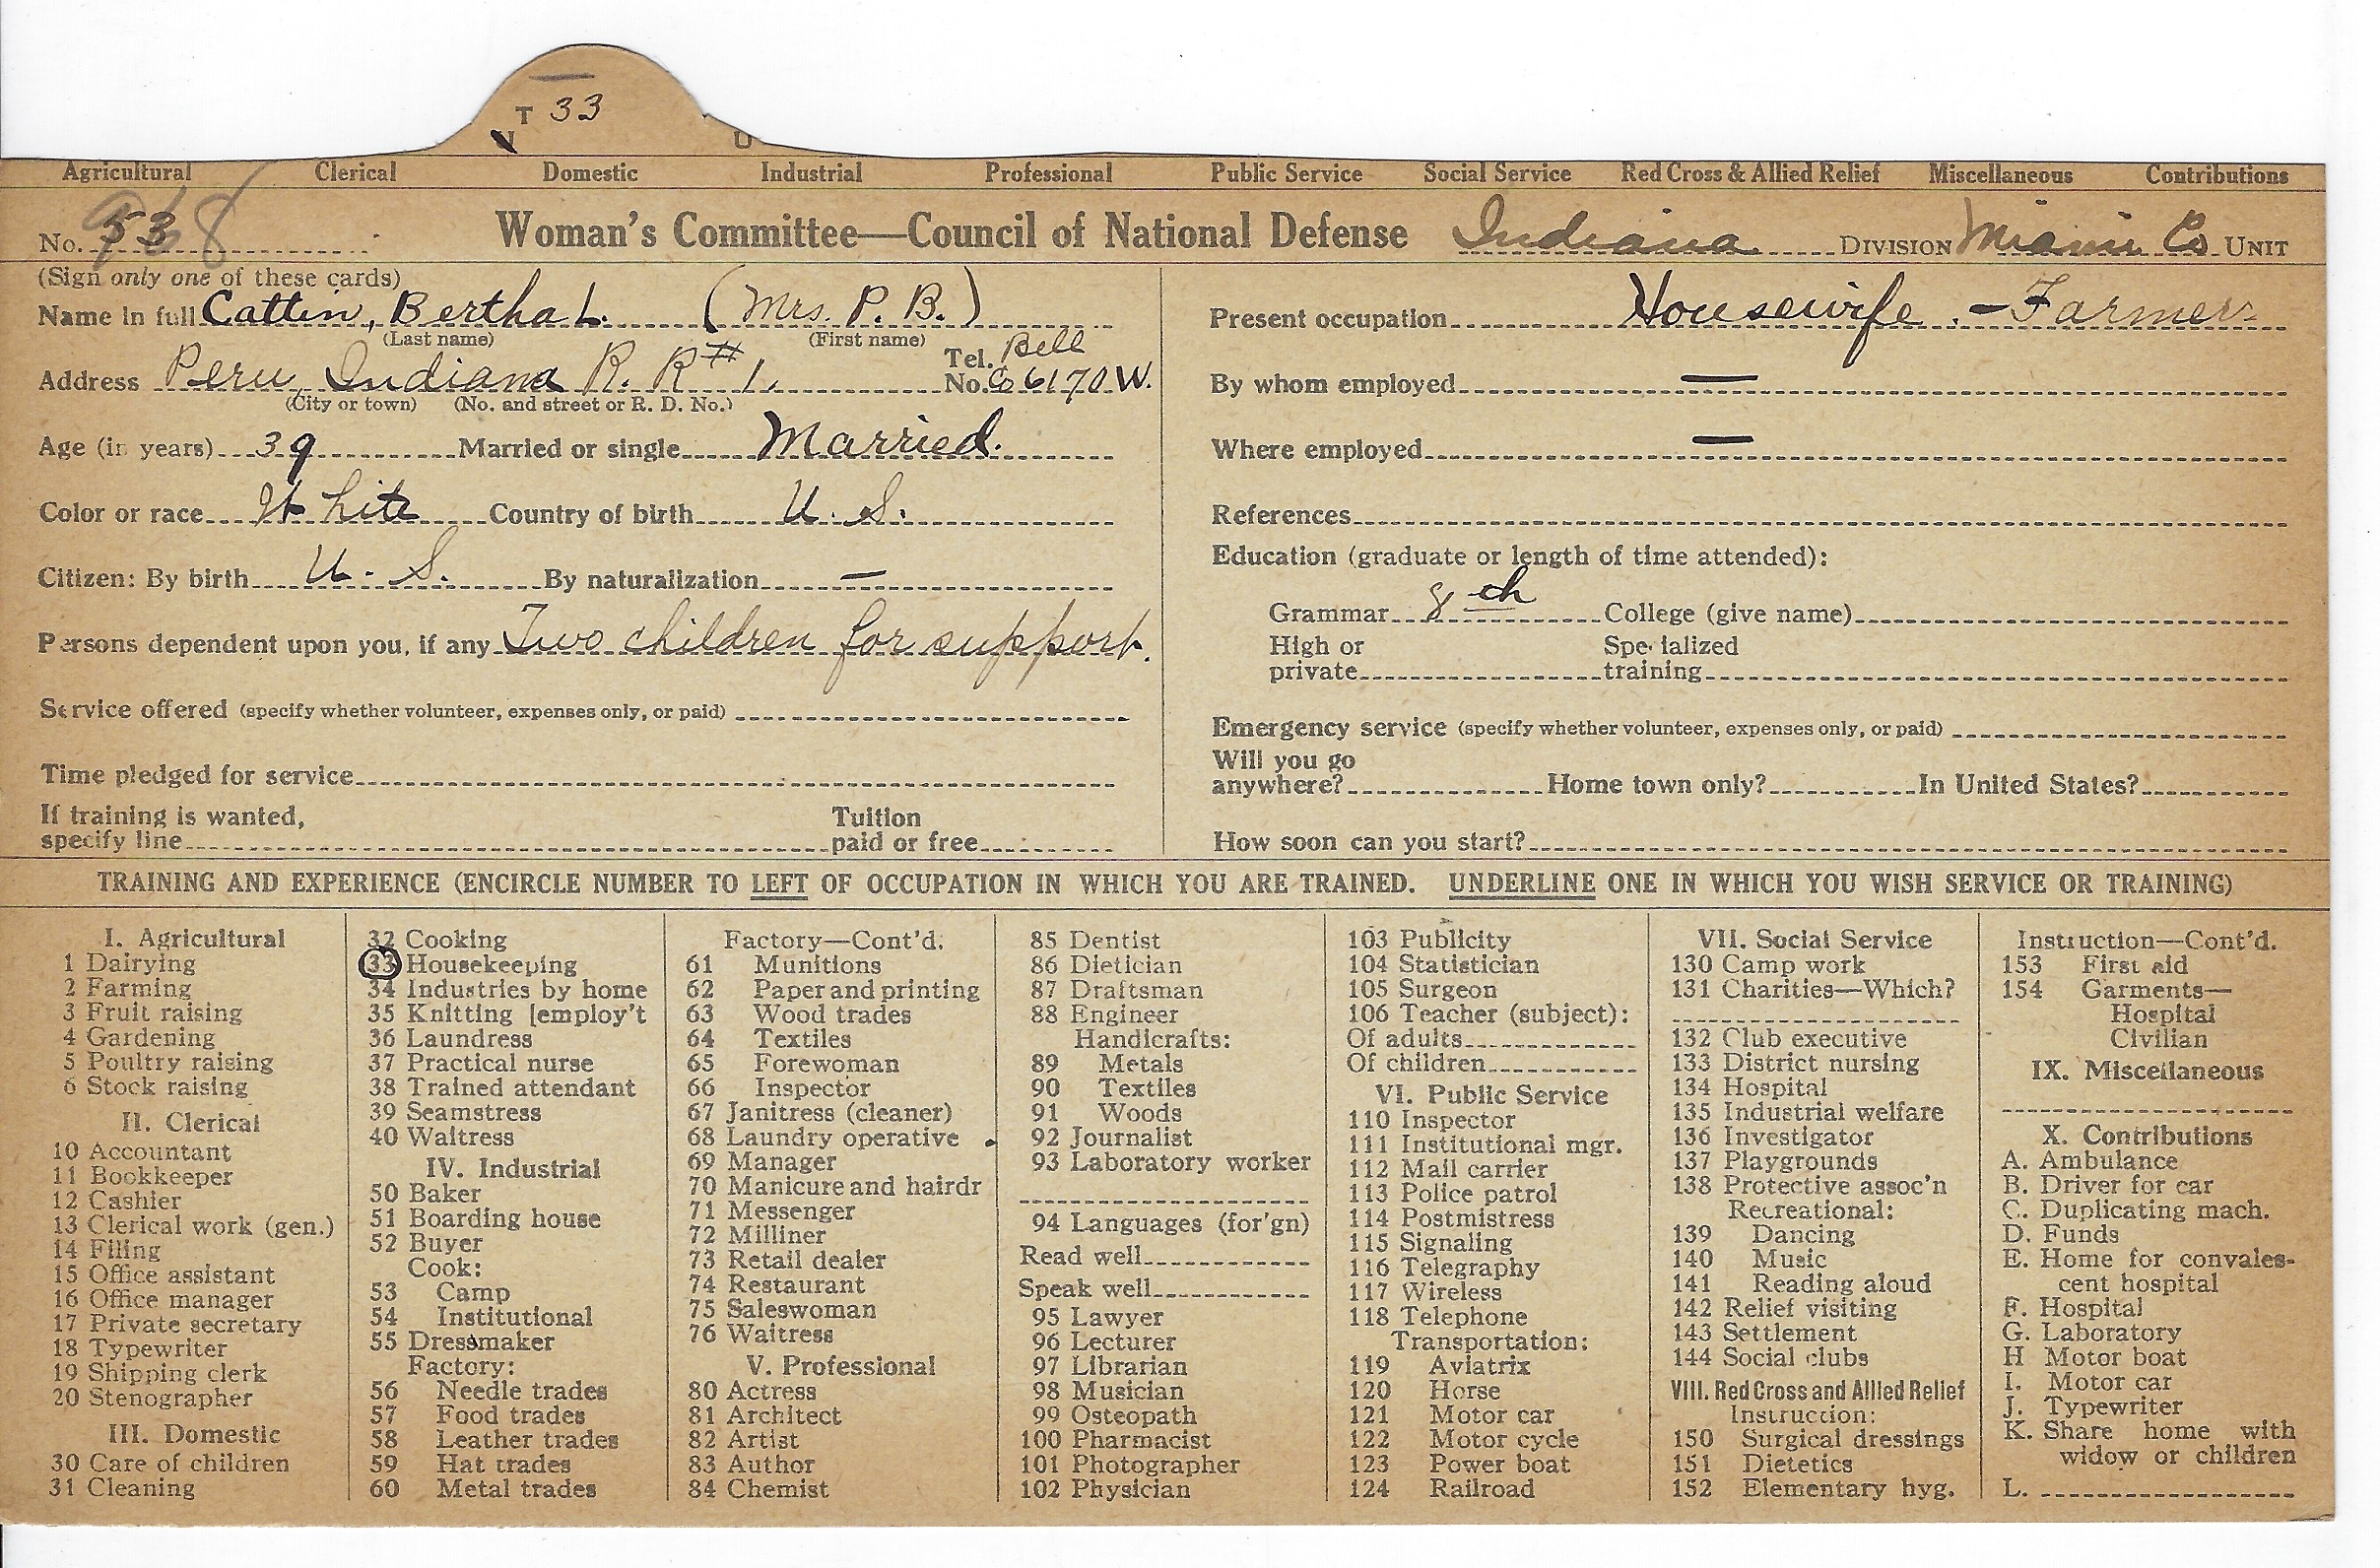 T 33
N U
Agricultural Clerical Domestic Industrial Professional Public Service Social Service Red Cross & Allied Relief Miscellaneous Contributions
No. 53 968 Woman's Committee—Council of National Defense Indiana DIVISION Miami Co. UNIT
(Sign only one of these cards)
Name in full Cattin, Bertha L. (Mrs. P. B.)
(Last name) (First name)
Address Peru, Indiana R. R # 1. Tel. No. Bell Co 6170 W.
(City or town) (No. and street or R. D. No.)
Age (in years) 39 Married or single Married.
Color or race White Country of birth U. S.
Citizen: By birth U. S. By naturalization —
Persons dependent upon you, if any Two children for support.
Service offered (specify whether volunteer, expenses only, or paid)
Time pledged for service
If training is wanted,
specify line
Tuition
paid or free
Present occupation Housewife. - Farmer
By whom employed —
Where employed —
References
Education (graduate or length of time attended):
Grammar 8th College (give name)
High or
private
Specialized
training
Emergency service (specify whether volunteer, expenses only, or paid)
Will you go
anywhere? Home town only? In United States?
How soon can you start?
TRAINING AND EXPERIENCE (ENCIRCLE NUMBER TO LEFT OF OCCUPATION IN WHICH YOU ARE TRAINED. UNDERLINE ONE IN WHICH YOU WISH SERVICE OR TRAINING)
I. Agricultural
1 Dairying
2 Farming
3 Fruit raising
4 Gardening
5 Poultry raising
6 Stock raising
II. Clerical
10 Accountant
11 Bookkeeper
12 Cashier
13 Clerical work (gen.)
14 Filing
15 Office assistant
16 Office manager
17 Private secretary
18 Typewriter
19 Shipping clerk
20 Stenographer
III. Domestic
30 Care of children
31 Cleaning
32 Cooking
33 Housekeeping
34 Industries by home
35 Knitting [employ't
36 Laundress
37 Practical nurse
38 Trained attendant
39 Seamstress
40 Waitress
IV. Industrial
50 Baker
51 Boarding house
52 Buyer
Cook:
53 Camp
54 Institutional
55 Dressmaker
Factory:
56 Needle trades
57 Food trades
58 Leather trades
59 Hat trades
60 Metal trades
Factory—Cont'd.
61 Munitions
62 Paper and printing
63 Wood trades
64 Textiles
65 Forewoman
66 Inspector
67 Janitress (cleaner)
68 Laundry operative
69 Manager
70 Manicure and hairdr
71 Messenger
72 Milliner
73 Retail dealer
74 Restaurant
75 Saleswoman
76 Waitress
V. Professional
80 Actress
81 Architect
82 Artist
83 Author
84 Chemist
85 Dentist
86 Dietician
87 Draftsman
88 Engineer
Handicrafts:
89 Metals
90 Textiles
91 Woods
92 Journalist
93 Laboratory worker
94 Languages (for'gn)
Read well
Speak well
95 Lawyer
96 Lecturer
97 Librarian
98 Musician
99 Osteopath
100 Pharmacist
101 Photographer
102 Physician
103 Publicity
104 Statistician
105 Surgeon
106 Teacher (subject):
Of adults
Of children
VI. Public Service
110 Inspector
111 Institutional mgr.
112 Mail carrier
113 Police patrol
114 Postmistress
115 Signaling
116 Telegraphy
117 Wireless
118 Telephone
Transportation:
119 Aviatrix
120 Horse
121 Motor car
122 Motor cycle
123 Power boat
124 Railroad
VII. Social Service
130 Camp work
131 Charities—Which?
132 Club executive
133 District nursing
134 Hospital
135 Industrial welfare
136 Investigator
137 Playgrounds
138 Protective assoc'n
Recreational:
139 Dancing
140 Music
141 Reading aloud
142 Relief visiting
143 Settlement
144 Social clubs
VIII. Red Cross and Allied Relief
Instruction:
150 Surgical dressings
151 Dietetics
152 Elementary hyg.
Instruction—Cont'd.
153 First aid
154 Garments—
Hospital
Civilian
IX. Miscellaneous
X. Contributions
A. Ambulance
B. Driver for car
C. Duplicating mach.
D. Funds
E. Home for convales-
cent hospital
F. Hospital
G. Laboratory
H Motor boat
I. Motor car
J. Typewriter
K. Share home with
widow or children
L.